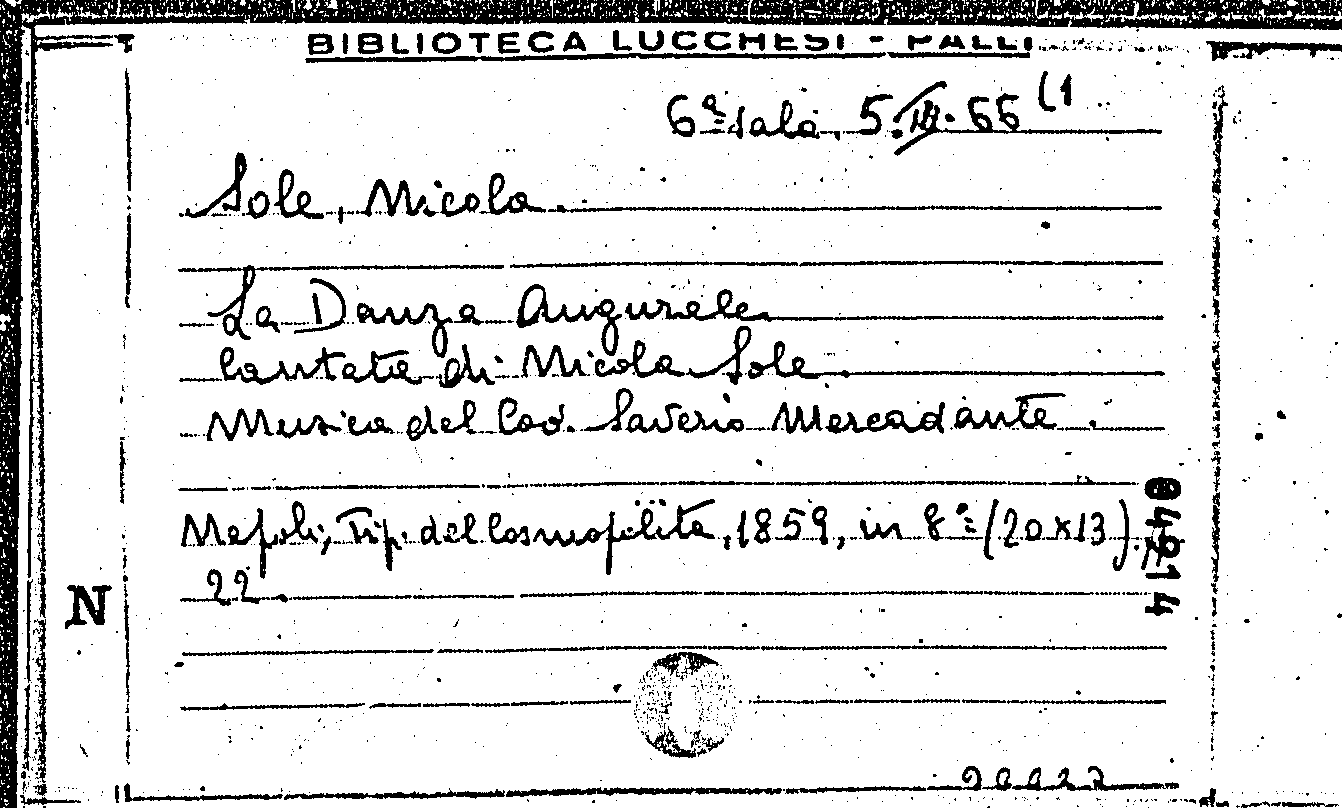 BIBLIOTECA LUCCHESI - PALLI
6ª sala. 5. III. 66 (1
Sole, Nicola.
La Danza Augurale
Cantata di Nicola Sole.
Musica del Cav. Saverio Mercadante.
Napoli, Tip. del Cosmopolita, 1859, in 8º (20x13).
22.
04914
N